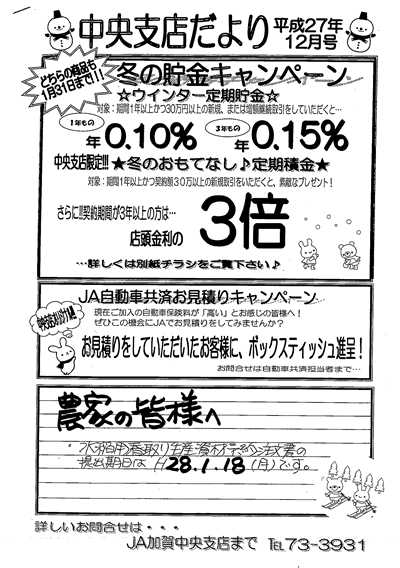 中央支店だより
平成27年
12月号
どちらの商品も
1月31日まで!!!
冬の貯金キャンペーン
☆ウインター定期貯金☆
対象：期間1年以上かつ30万円以上の新規、または増額継続取引をしていただくと…
1年もの 年0.10% 3年もの 年0.15%
中央支店限定!!! ★冬のおもてなし♪定期積金★
対象：期間1年以上かつ契約額30万以上の新規取引をいただくと、素敵なプレゼント!
さらに!!契約期間が3年以上の方は…
店頭金利の 3倍
…詳しくは別紙チラシをご覧下さい♪
JA自動車共済お見積りキャンペーン
現在ご加入の自動車保険料が「高い」とお感じの皆様へ!
ぜひこの機会にJAでお見積りをしてみませんか?
お見積りをしていただいたお客様に、ボックスティッシュ進呈!
お問合せは自動車共済担当者まで…
農家の皆様へ
・水稲用春取り生産資材予約注文書の
提出期日は H28.1.18(月)です。
詳しいお問合せは・・・
JA加賀中央支店まで TEL73-3931